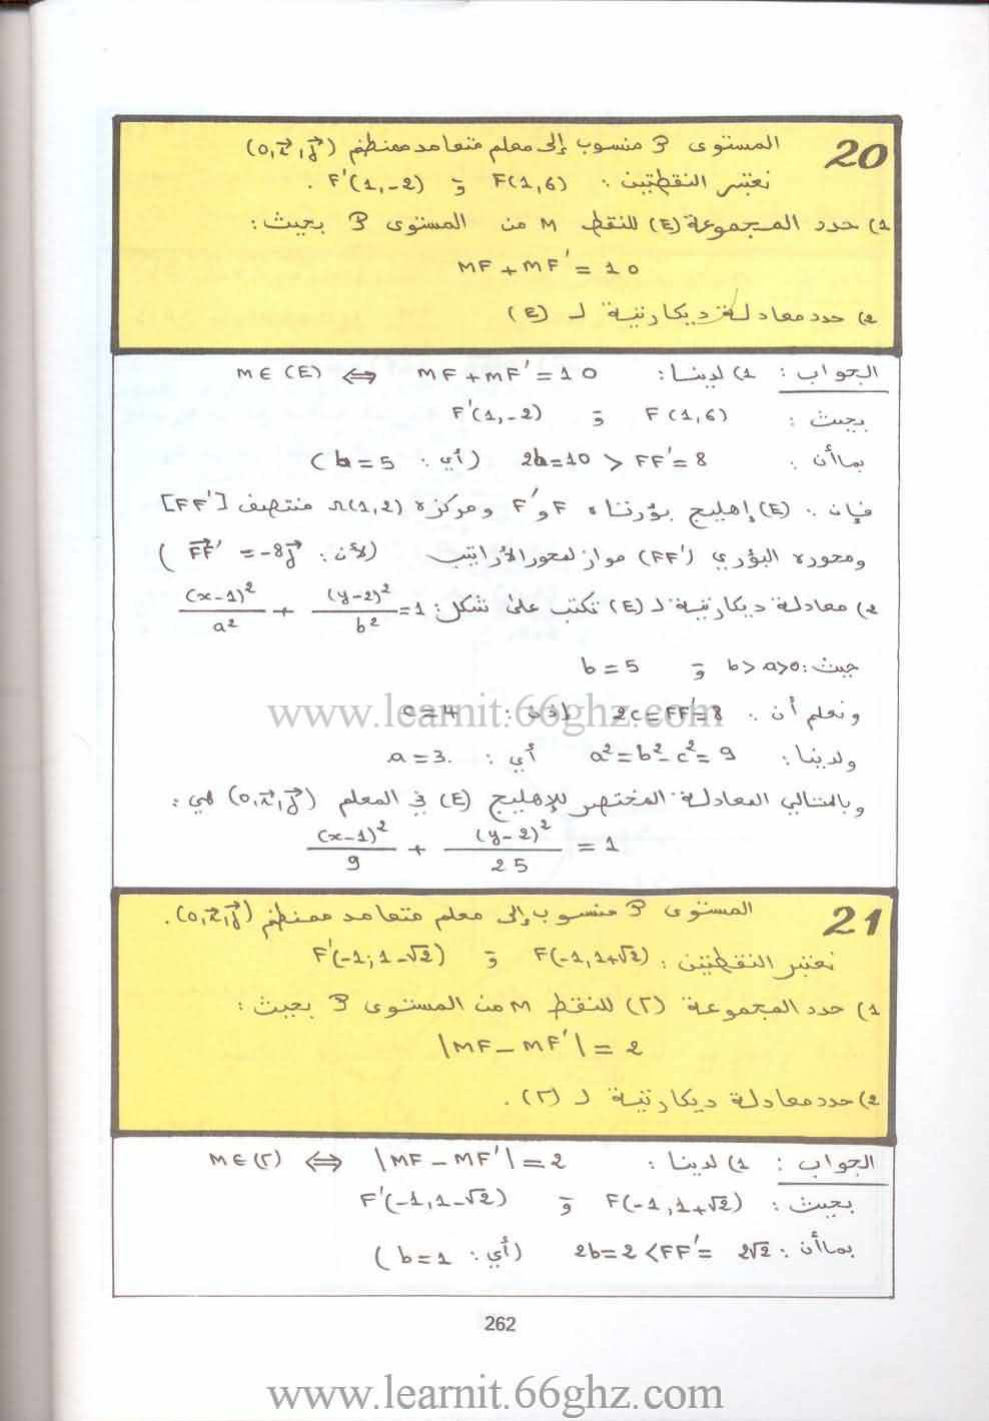 20
المستوى P منسوب إلى معلم متعامد ممنظم (O,i⃗,j⃗)
نعتبر النقطتين : F(1,6) و F'(1,-2) .
1) حدد المجموعة (E) للنقط M من المستوى P بحيث :
MF + MF' = 10
2) حدد معادلة ديكارتية لـ (E)
الجواب : 1) لدينا : M∈(E) ⇔ MF+MF'=10
بحيث : F(1,6) و F'(1,-2)
بما أن : 2b=10 > FF'=8 (أي : b=5)
فإن : (E) إهليج بؤرتاه F و F' ومركزه Ω(1,2) منتصف [FF']
ومحوره البؤري (FF') مواز لمحور الأراتيب (لأن : FF'⃗ = -8j⃗)
2) معادلة ديكارتية لـ (E) تكتب على شكل : (x-1)²/a² + (y-2)²/b² = 1
حيث : b>a>0 و b=5
ونعلم أن : 2c=FF'=8 إذن : c=4
ولدينا : a²=b²-c²=9 أي : a=3.
وبالتالي المعادلة المختصر للإهليج (E) في المعلم (O,i⃗,j⃗) هي :
(x-1)²/9 + (y-2)²/25 = 1
21
المستوى P منسوب إلى معلم متعامد ممنظم (O,i⃗,j⃗).
نعتبر النقطتين : F(-1,1+√2) و F'(-1;1-√2)
1) حدد المجموعة (Γ) للنقط M من المستوى P بحيث :
|MF - MF'| = 2
2) حدد معادلة ديكارتية لـ (Γ) .
الجواب : 1) لدينا : M∈(Γ) ⇔ |MF-MF'|=2
بحيث : F(-1,1+√2) و F'(-1,1-√2)
بما أن : 2b=2<FF'= 2√2 (أي : b=1)
262
www.learnit.66ghz.com
www.learnit.66ghz.com